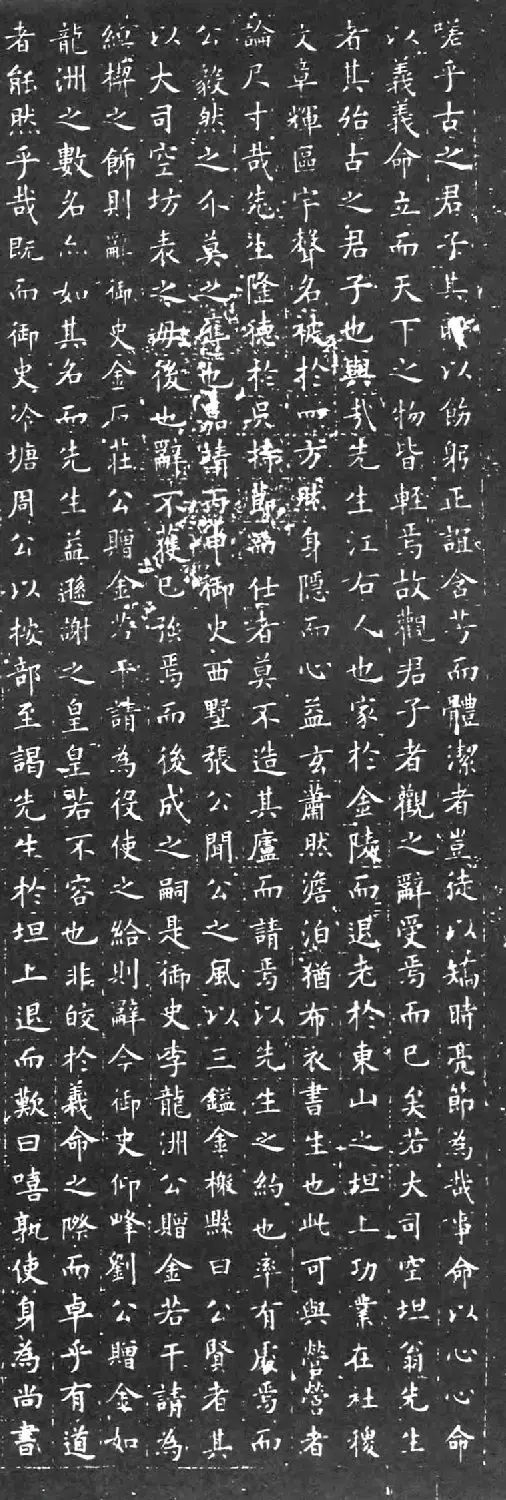 嗟乎古之君子其所以飭躬正誼含芳而體潔者豈徒以矯時亮節為哉事命以心心命
以義義命立而天下之物皆輕焉故觀君子者觀之辭受焉而已矣若大司空坦翁先生
者其殆古之君子也與哉先生江右人也家於金陵而退老於東山之坦上功業在社稷
文章輝區宇聲名被於四方然身隱而心益玄蕭然澹泊猶布衣書生也此可與營營者
論尺寸哉先生隆德於吳持節而仕者莫不造其廬而請焉以先生之約也率有廋焉而
公毅然之不莫之瀍也嘉靖丙申御史西墅張公聞公之風以三鎰金檄縣曰公賢者其
以大司空坊表之毋後也辭不獲已強焉而後成之嗣是御史李龍洲公贈金若干請為
綽楔之飾則辭御史金石莊公贈金若干請為役使之給則辭今御史仰峰劉公贈金如
龍洲之數名亦如其名而先生益遜謝之皇皇若不容也非皎於義命之際而卓乎有道
者能然乎哉既而御史冷塘周公以按部至謁先生於坦上退而歎曰嘻孰使身為尚書